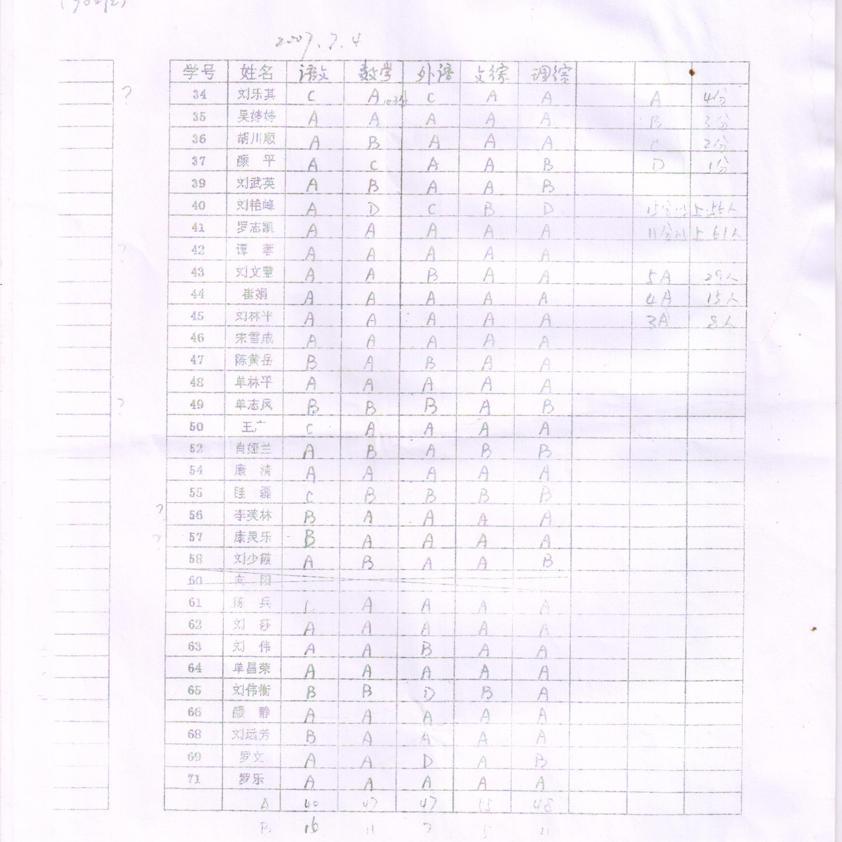 2007.7.4
学号 姓名 语文 数学 外语 文综 理综
34 刘乐其 C A C A A A 4分
35 吴婷婷 A A A A A B 3分
36 胡川顺 A B A A A C 2分
37 颜平 A C A A B D 1分
39 刘武英 A B A A B
40 刘艳峰 A D C B D
41 罗志凯 A A A A A
42 谭 A A A A A
43 刘文慧 A A B A A 5A 29人
44 崔娟 A A A A A 4A 15人
45 刘林平 A A A A A 3A 8人
46 宋雪成 A A A A A
47 陈黄岳 B A B A A
48 单林平 A A A A A
49 单志凤 B B B A B
50 王广 C A A A A
52 肖娅兰 A B A B B
54 康清 A A A A A
55 C B B B B
56 李美林 B A A A A
57 康灵乐 B A A A A
58 刘少霞 A B A A B
60
61 杨兵 A A A A
62 刘莎 A A A A A
63 刘伟 A A B A A
64 单昌荣 A A A A A
65 刘伟衡 B B D B A
66 颜静 A A A A A
68 刘远芳 B A A A A
69 罗文 A A D A B
71 罗乐 A A A A A
A 40 47 47 48
B 16 11 7 5 11